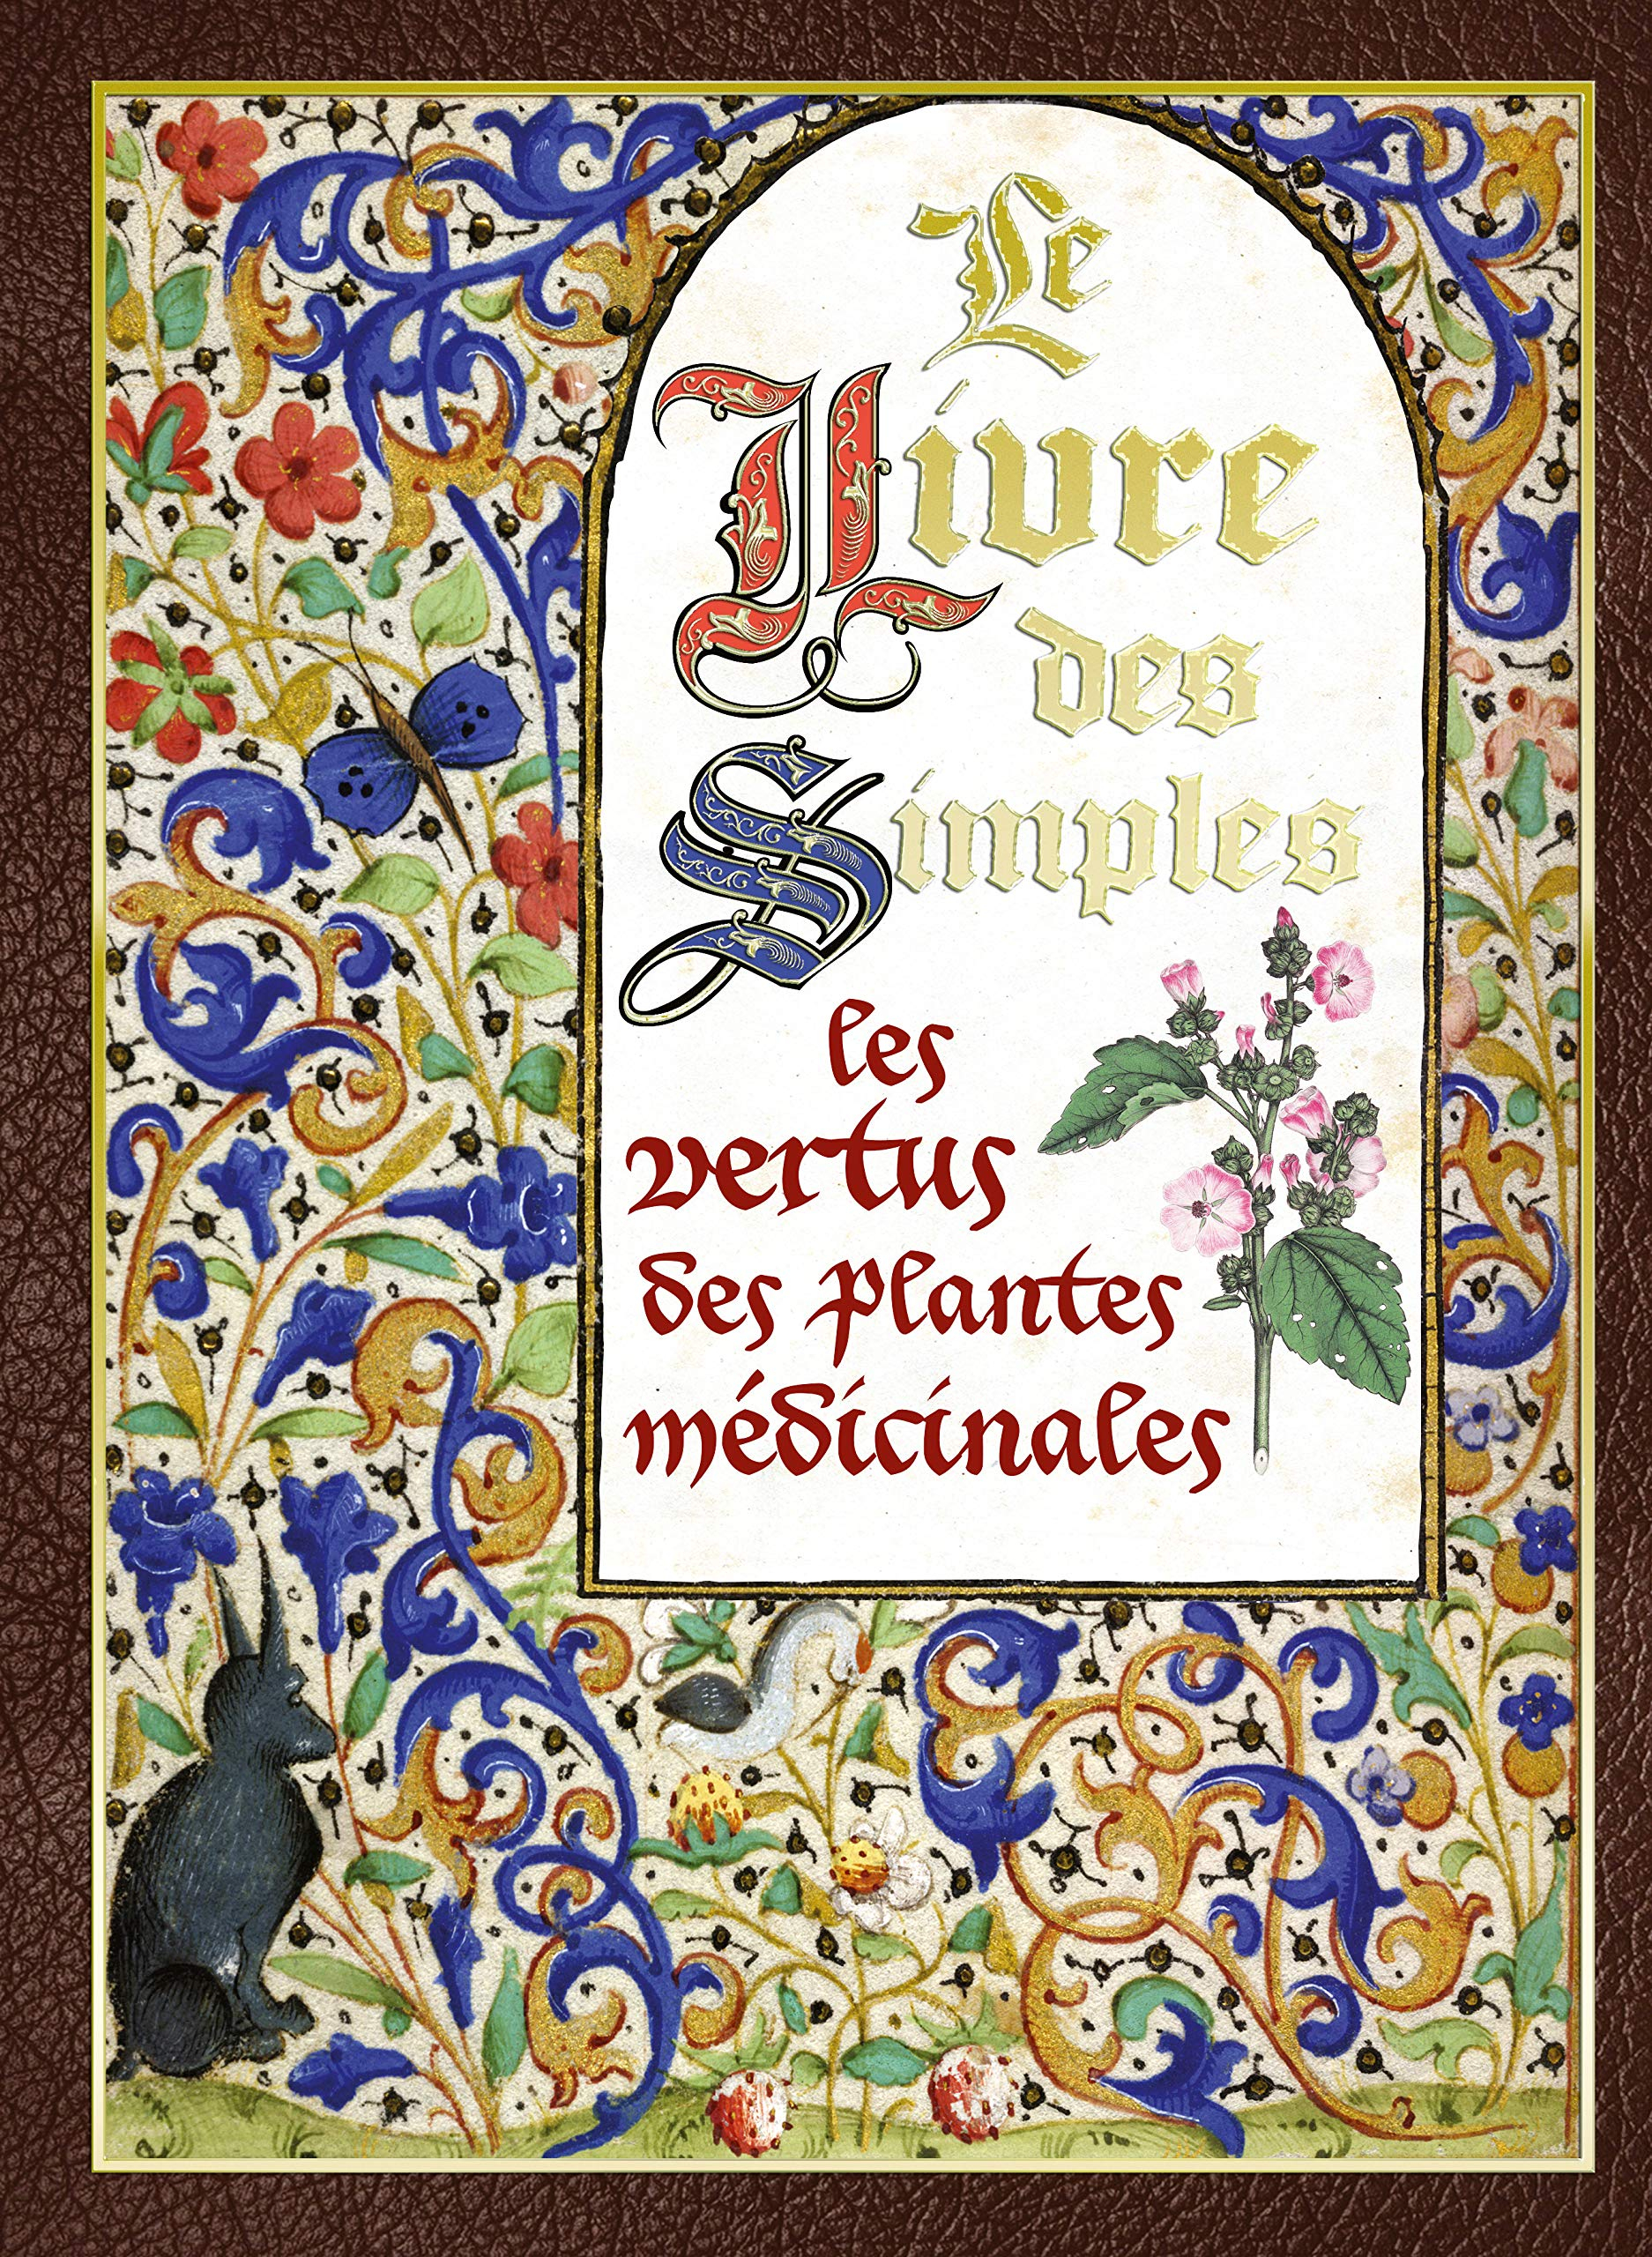 Le
Livre
des
Simples
les
vertus
des plantes
médicinales